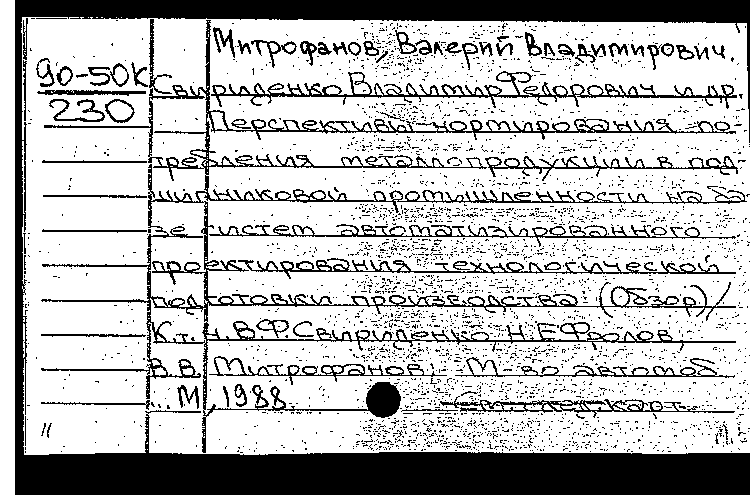 Митрофанов, Валерий Владимирович.
90-50К
230
Свириденко, Владимир Федорович и др.
Перспективы нормирования по-
требления металлопродукции в под-
шипниковой промышленности на ба-
зе систем автоматизированного
проектирования технологической
подготовки производства: (Обзор) /
К.т.н. В.Ф. Свириденко, Н.Е. Фролов,
В.В. Митрофанов; М-во автомоб.
... М, 1988.
См. след. карт.
11